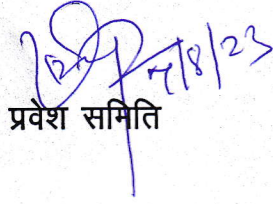 7/8/23
प्रवेश समिति